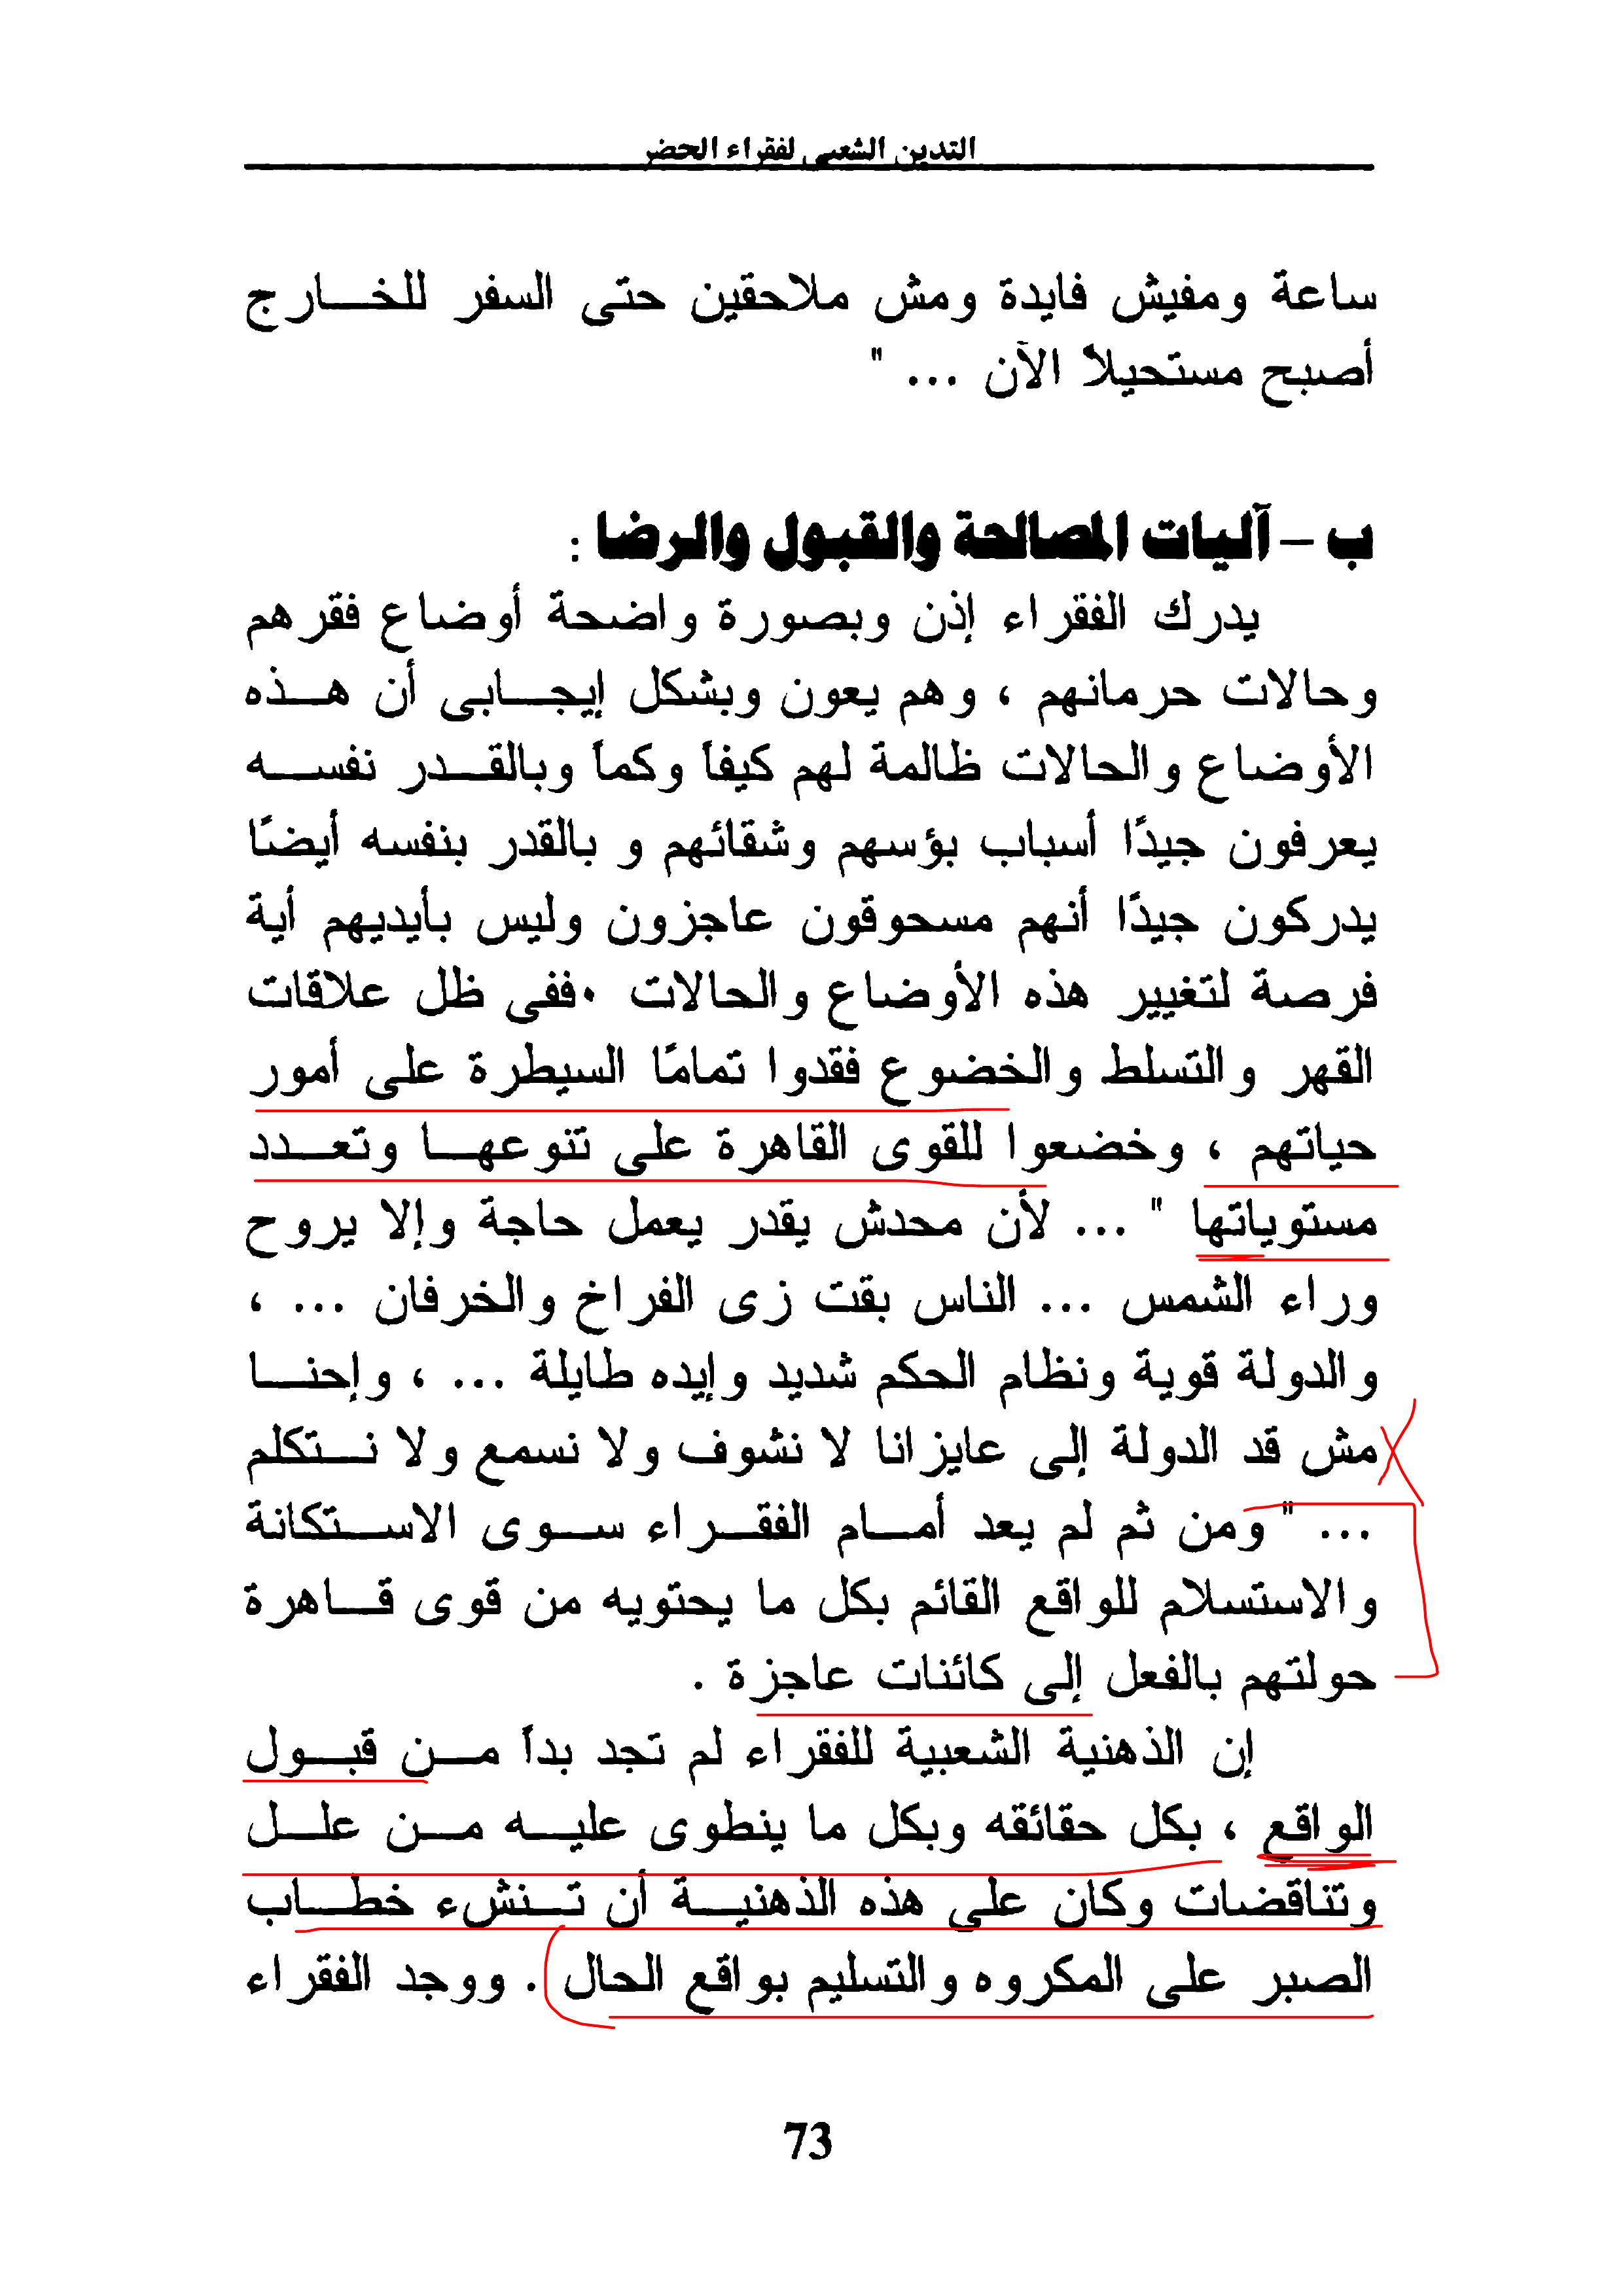 التدين الشعبى لفقراء الحضر
ساعة ومفيش فايدة ومش ملاحقين حتى السفر للخارج
أصبح مستحيلاً الآن ... "
ب – آليات المصالحة والقبول والرضا :
يدرك الفقراء إذن وبصورة واضحة أوضاع فقرهم
وحالات حرمانهم ، وهم يعون وبشكل إيجابى أن هذه
الأوضاع والحالات ظالمة لهم كيفاً وكماً وبالقدر نفسه
يعرفون جيدًا أسباب بؤسهم وشقائهم و بالقدر بنفسه أيضًا
يدركون جيدًا أنهم مسحوقون عاجزون وليس بأيديهم أية
فرصة لتغيير هذه الأوضاع والحالات ٠ففى ظل علاقات
القهر والتسلط والخضوع فقدوا تمامًا السيطرة على أمور
حياتهم ، وخضعوا للقوى القاهرة على تنوعها وتعدد
مستوياتها " ... لأن محدش يقدر يعمل حاجة وإلا يروح
وراء الشمس ... الناس بقت زى الفراخ والخرفان ... ،
والدولة قوية ونظام الحكم شديد وإيده طايلة ... ، وإحنا
مش قد الدولة إلى عايزانا لا نشوف ولا نسمع ولا نتكلم
... " ومن ثم لم يعد أمام الفقراء سوى الاستكانة
والاستسلام للواقع القائم بكل ما يحتويه من قوى قاهرة
حولتهم بالفعل إلى كائنات عاجزة .
إن الذهنية الشعبية للفقراء لم تجد بداً من قبول
الواقع ، بكل حقائقه وبكل ما ينطوى عليه من علل
وتناقضات وكان على هذه الذهنية أن تنشء خطاب
الصبر على المكروه والتسليم بواقع الحال . ووجد الفقراء
73